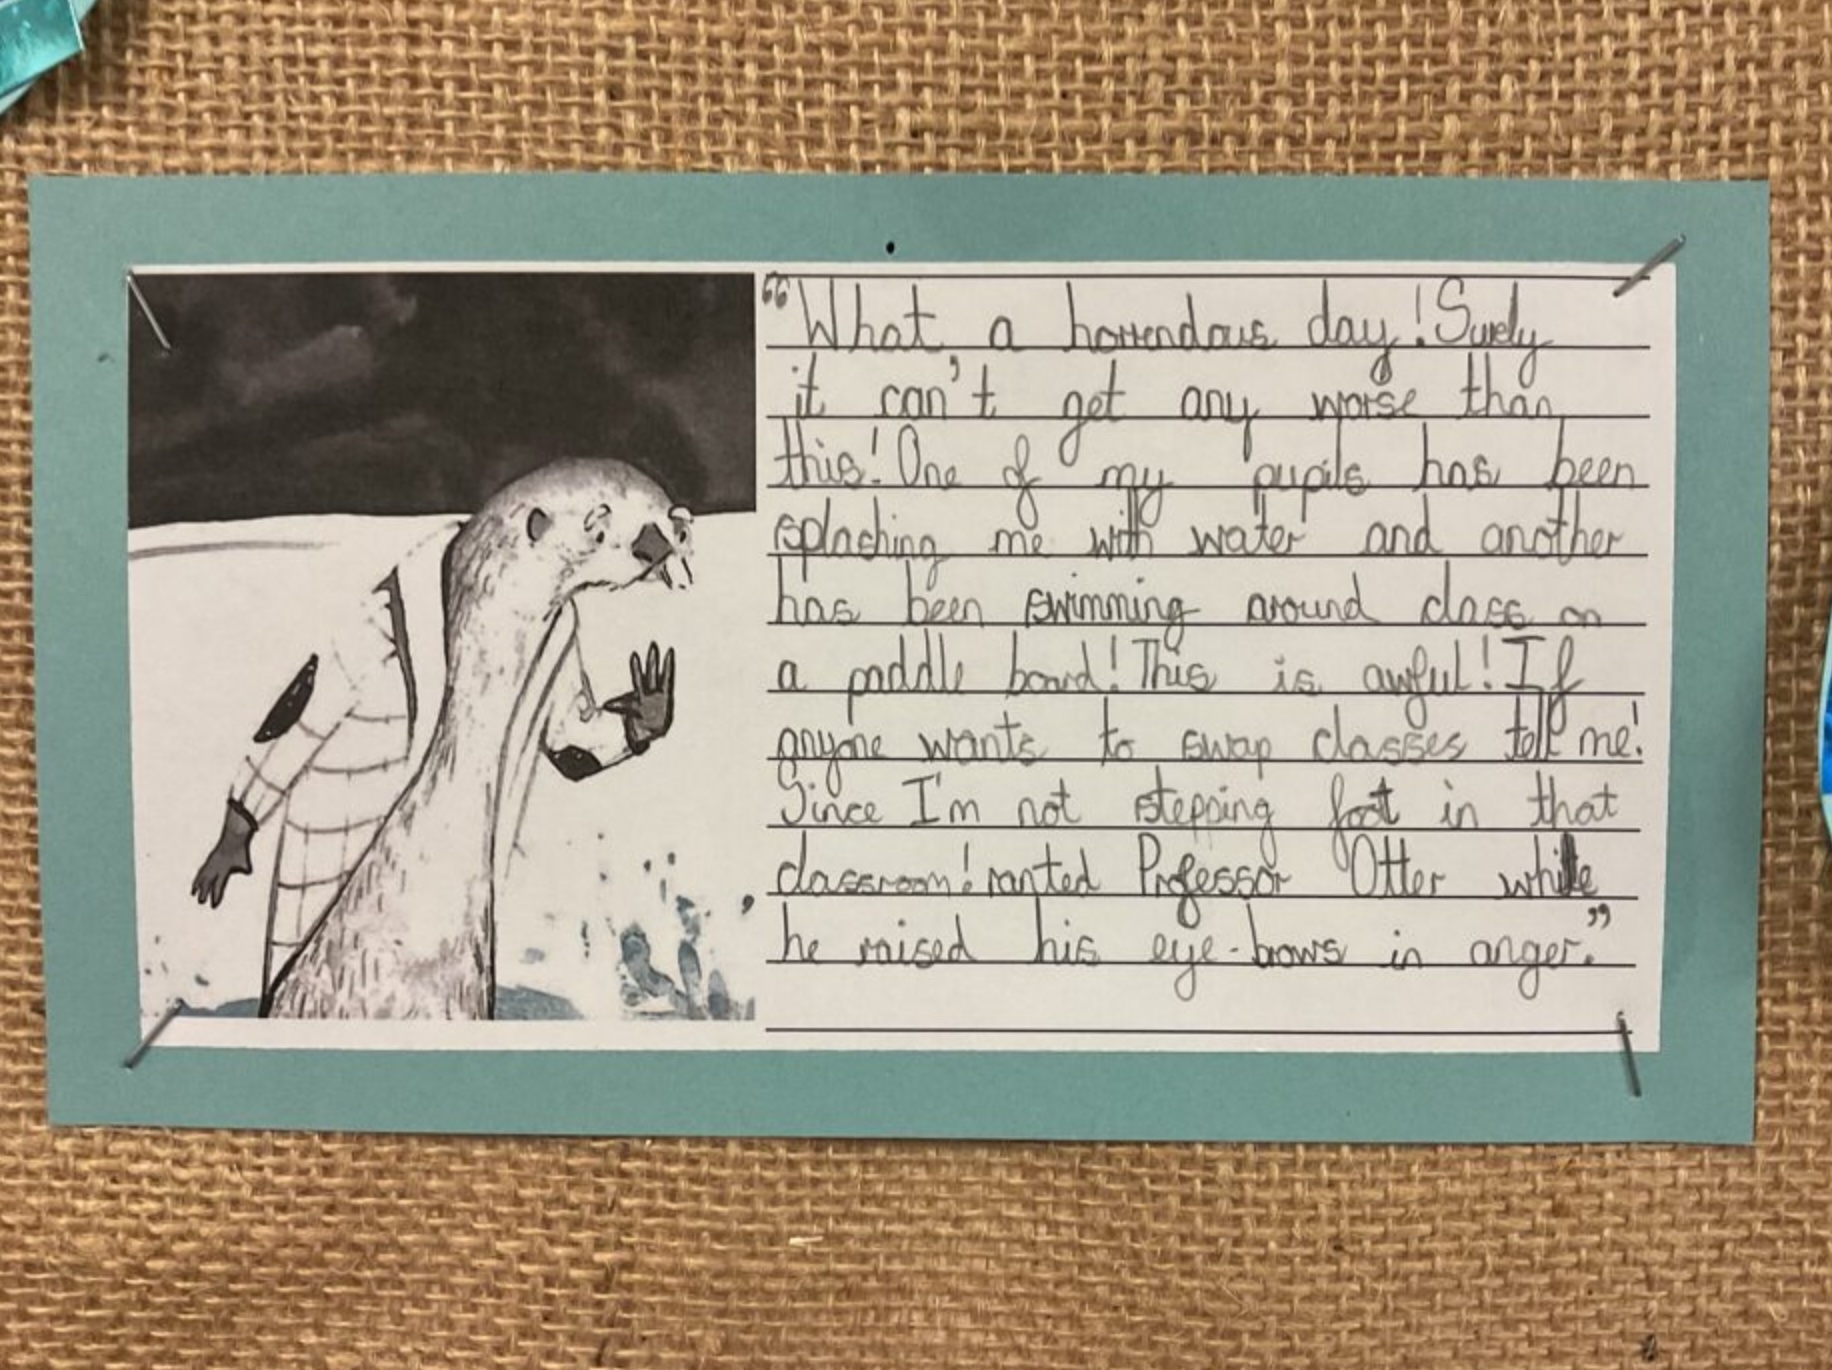 “What a horrendous day! Surely
it can't get any worse than
this! One of my pupils has been
splashing me with water and another
has been swimming around class on
a paddle board! This is awful! If
anyone wants to swap classes tell me!
Since I'm not stepping foot in that
classroom! ranted Professor Otter while
he raised his eye-brows in anger.”